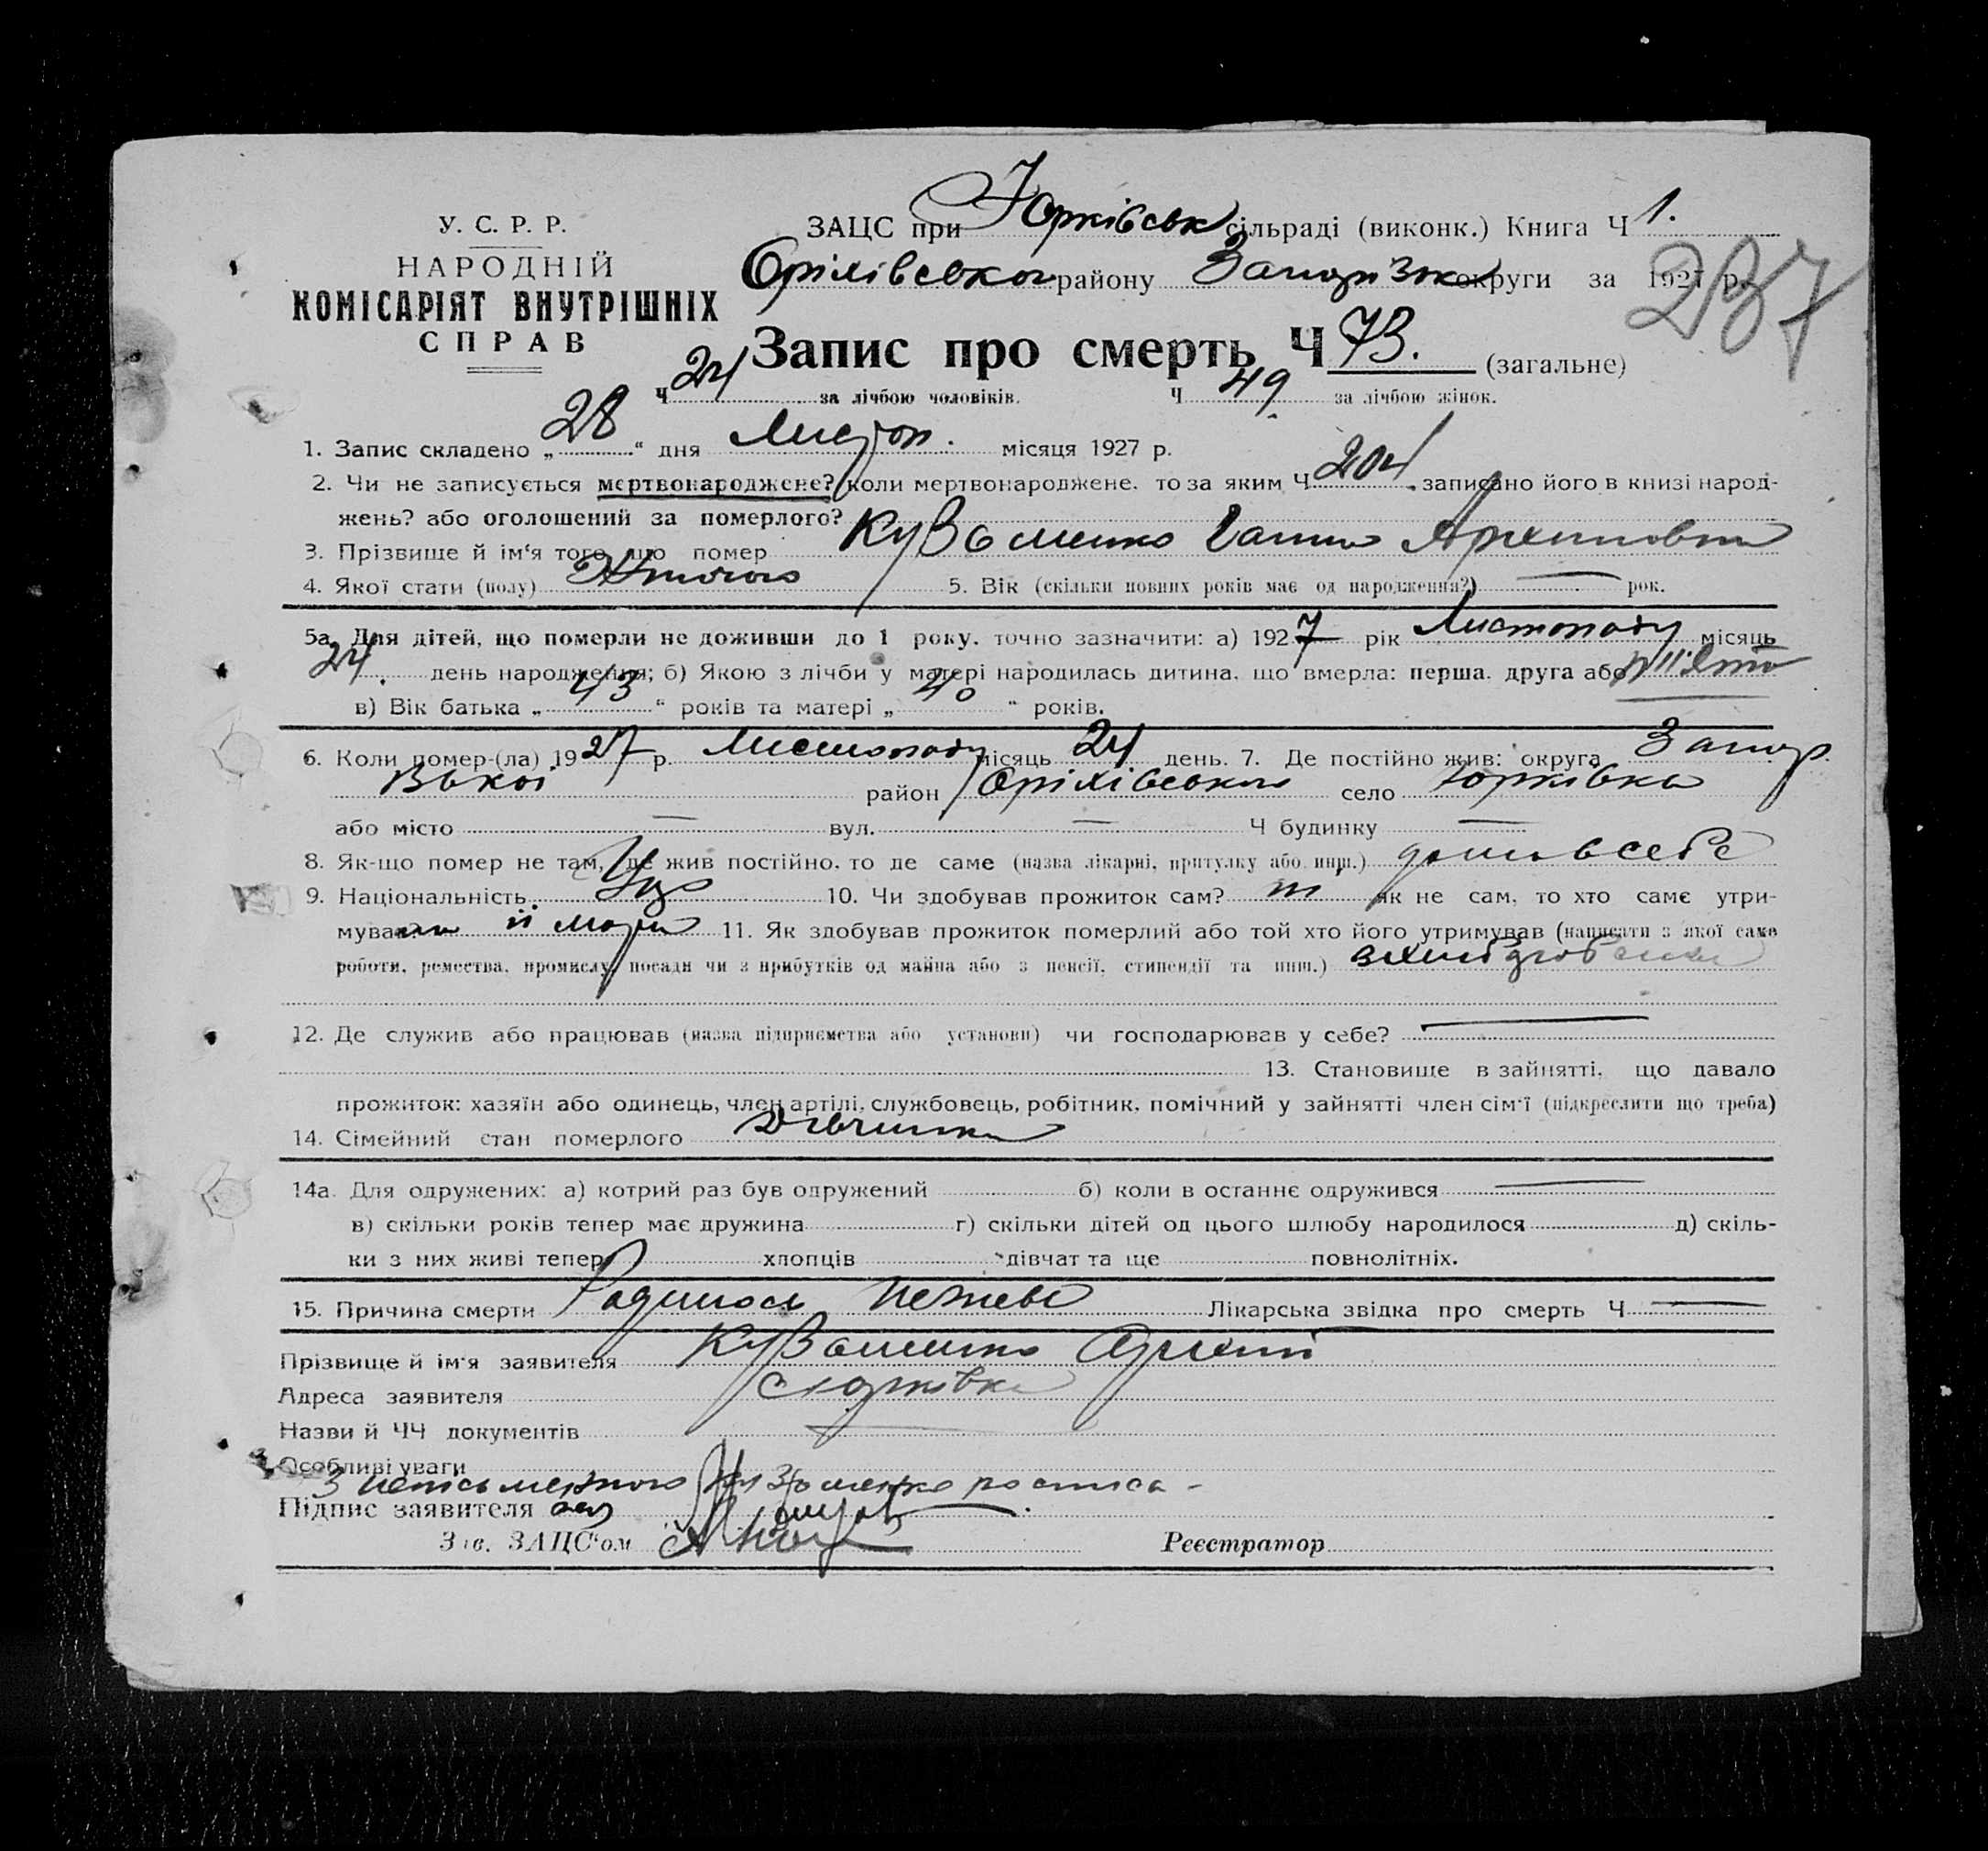 У. С. Р. Р.
НАРОДНІЙ
КОМІСАРІЯТ ВНУТРІШНІХ
СПРАВ
ЗАЦС при Юрківськ сільраді (виконк.) Книга Ч 1.
Оріхівського району округи за 1927 р.
237
Запис про смерть Ч 73. (загальне)
Ч 24 за лічбою чоловіків. Ч 49 за лічбою жінок.
1. Запис складено „ 28 “ дня Листоп. місяця 1927 р.
2. Чи не записується мертвонароджене? коли мертвонароджене. то за яким Ч 204 записано його в книзі народ-
жень? або оголошений за померлого?
3. Прізвище й ім‘я того, що помер Ганна Архиповна
4. Якої стати (полу) Жіночого 5. Вік (скільки повних років має од народження?) — рок.
5а. Для дітей, що померли не доживши до 1 року. точно зазначити: а) 1927 рік Листопаду місяць
24. день народження; б) Якою з лічби у матері народилась дитина, що вмерла: перша. друга або
в) Вік батька „ 43 “ років та матері „ 40 “ років.
6. Коли помер-(ла) 1927 р. Листопаду місяць 24 день. 7. Де постійно жив: округа Запор.
район Оріхівського село Юрківка
або місто — вул. — Ч будинку —
8. Як-що помер не там, де жив постійно, то де саме (назва лікарні, притулку або инш.) дома в себе
9. Національність Укр 10. Чи здобував прожиток сам? ні як не сам, то хто саме утри-
мував 11. Як здобував прожиток померлий або той хто його утримував (написати з якої саме
роботи, ремества, промислу, посади чи з прибутків од майна або з пенсії, стипендії та инш.)
12. Де служив або працював (назва підприємства або установи) чи господарював у себе? —
13. Становище в зайнятті, що давало
прожиток: хазяїн або одинець, член артілі, службовець, робітник, помічний у зайнятті член сім‘ї (підкреслити що треба)
14. Сімейний стан померлого Дівчинка
14а. Для одружених: а) котрий раз був одружений б) коли в останнє одружився —
в) скільки років тепер має дружина г) скільки дітей од цього шлюбу народилося д) скіль-
ки з них живі тепер хлопців дівчат та ще повнолітніх.
15. Причина смерти Родилося неживе Лікарська звідка про смерть Ч —
Прізвище й ім‘я заявителя Архип
Адреса заявителя с Юрківка
Назви й ЧЧ документів —
Особливі уваги
Підпис заявителя
Зав. ЗАЦС‘ом Реєстратор